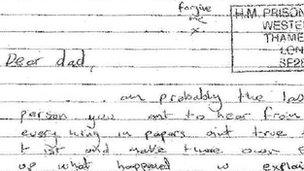 forgive
me
x
H.M. PRISON
WESTE
THAME
LON
SE28
Dear dad,
am probably the las
person you ant to hear from
every king in papers aint true
t ist and make there own s
up what happened explai